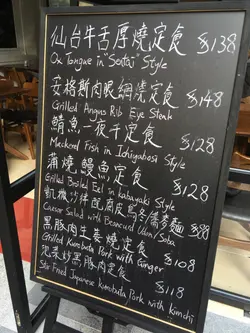 仙台牛舌厚燒定食 $138
Ox Tongue in "Sentai" Style
安格斯肉眼網燒定食 $148
Grilled Angus Rib Eye Steak
鯖魚一夜干定食 $128
Mackerel Fish in Ichiyaboshi Style
蒲燒鰻魚定食 $128
Grilled Broiled Eel in Kabayaki Style
沙律配腐皮烏冬/蕎麥麵 $88
Caesar Salad with Beancurd Udon/Soba
黑豚肉生薑燒定食 $108
Grilled Kurobuta Pork with Ginger
泡菜炒黑豚肉定食 $118
Stir Fried Japanese Kurobuta Pork with Kimchi